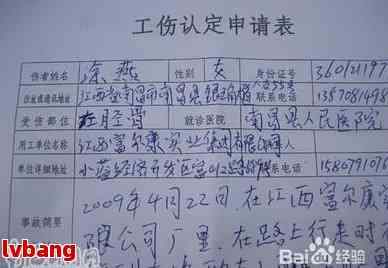 工伤认定申请表
伤者姓名 涂燕 性别 女 身份证号 360121197
住址或通讯地址 江西省南昌市南昌县 联系电话 1357081498
受伤部位 左胫骨 就诊医院 南昌县人民医院
用工单位名称 江西富尔康实业集团有限公司
单位详细地址 小蓝经济开发区富 联系电话 158079106
事故简要 2009年4月22日,在江西富尔康实
限公司厂里,在路上行走时
lvbang
Bai 百科